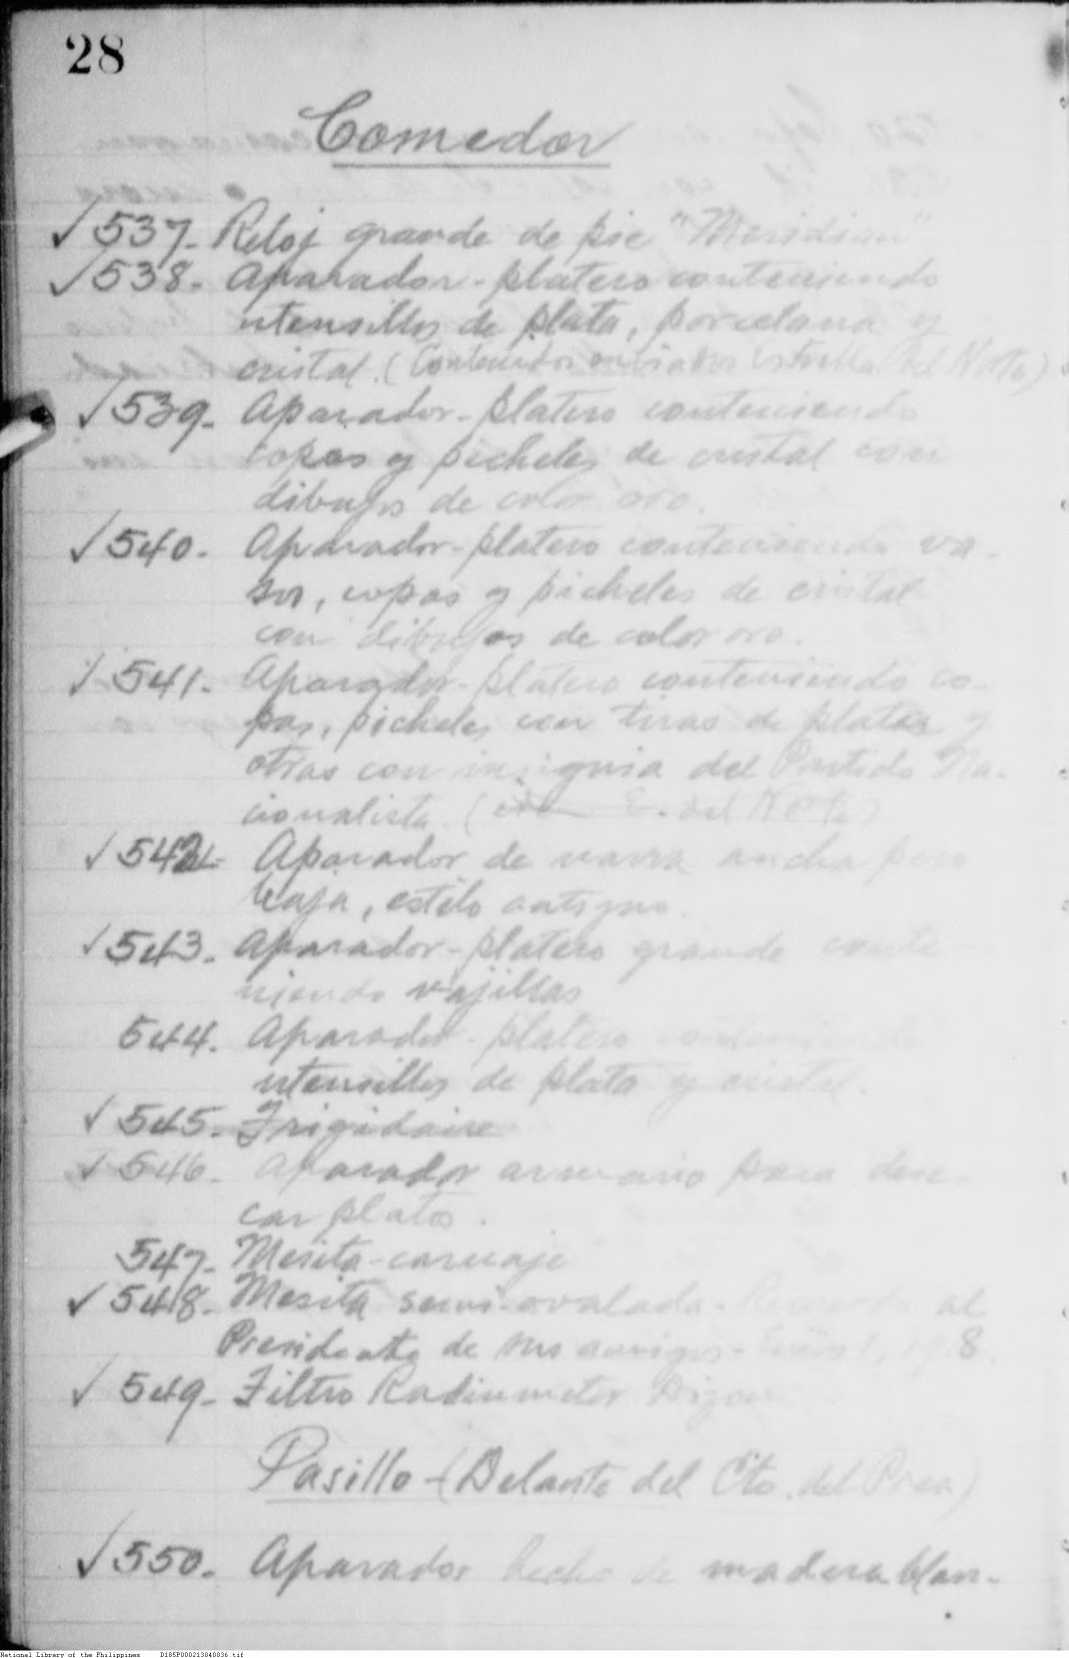 28
Comedor
✓ 537- Reloj grande de pie "Meridian"
✓ 538- Aparador-platero conteniendo
utensillos de plata, porcelana y
cristal. ( Estrella del Norte)
✓ 539- Aparador-platero conteniendo
copas y picheles de cristal con
dibujos de color oro.
✓ 540- Aparador-platero conteniendo va-
sos, copas y picheles de cristal
con dibujos de color oro.
✓ 541- Aparador-platero conteniendo co-
pas, picheles con tiras de plata y
otras con insignia del Partido Na-
cionalista ( E. del Norte)
✓ 542- Aparador de narra ancha pero
baja, estilo antiguo.
✓ 543- Aparador-platero grande conte
niendo vajillas
544. Aparador-platero conteniendo
utensillos de plata y cristal.
✓ 545- Frigidaire
✓ 546- Aparador armario para
car platos.
547- Mesita-carruaje
✓ 548- Mesita semi-ovalada- Recuerdo al
Presidente de sus amigos- 8.
✓ 549- Filtro Radiumator
Pasillo-(Delante del Cto. del Pres)
✓ 550- Aparador hecho de madera blan-
National Library of the Philippines D185P000213040036.tif